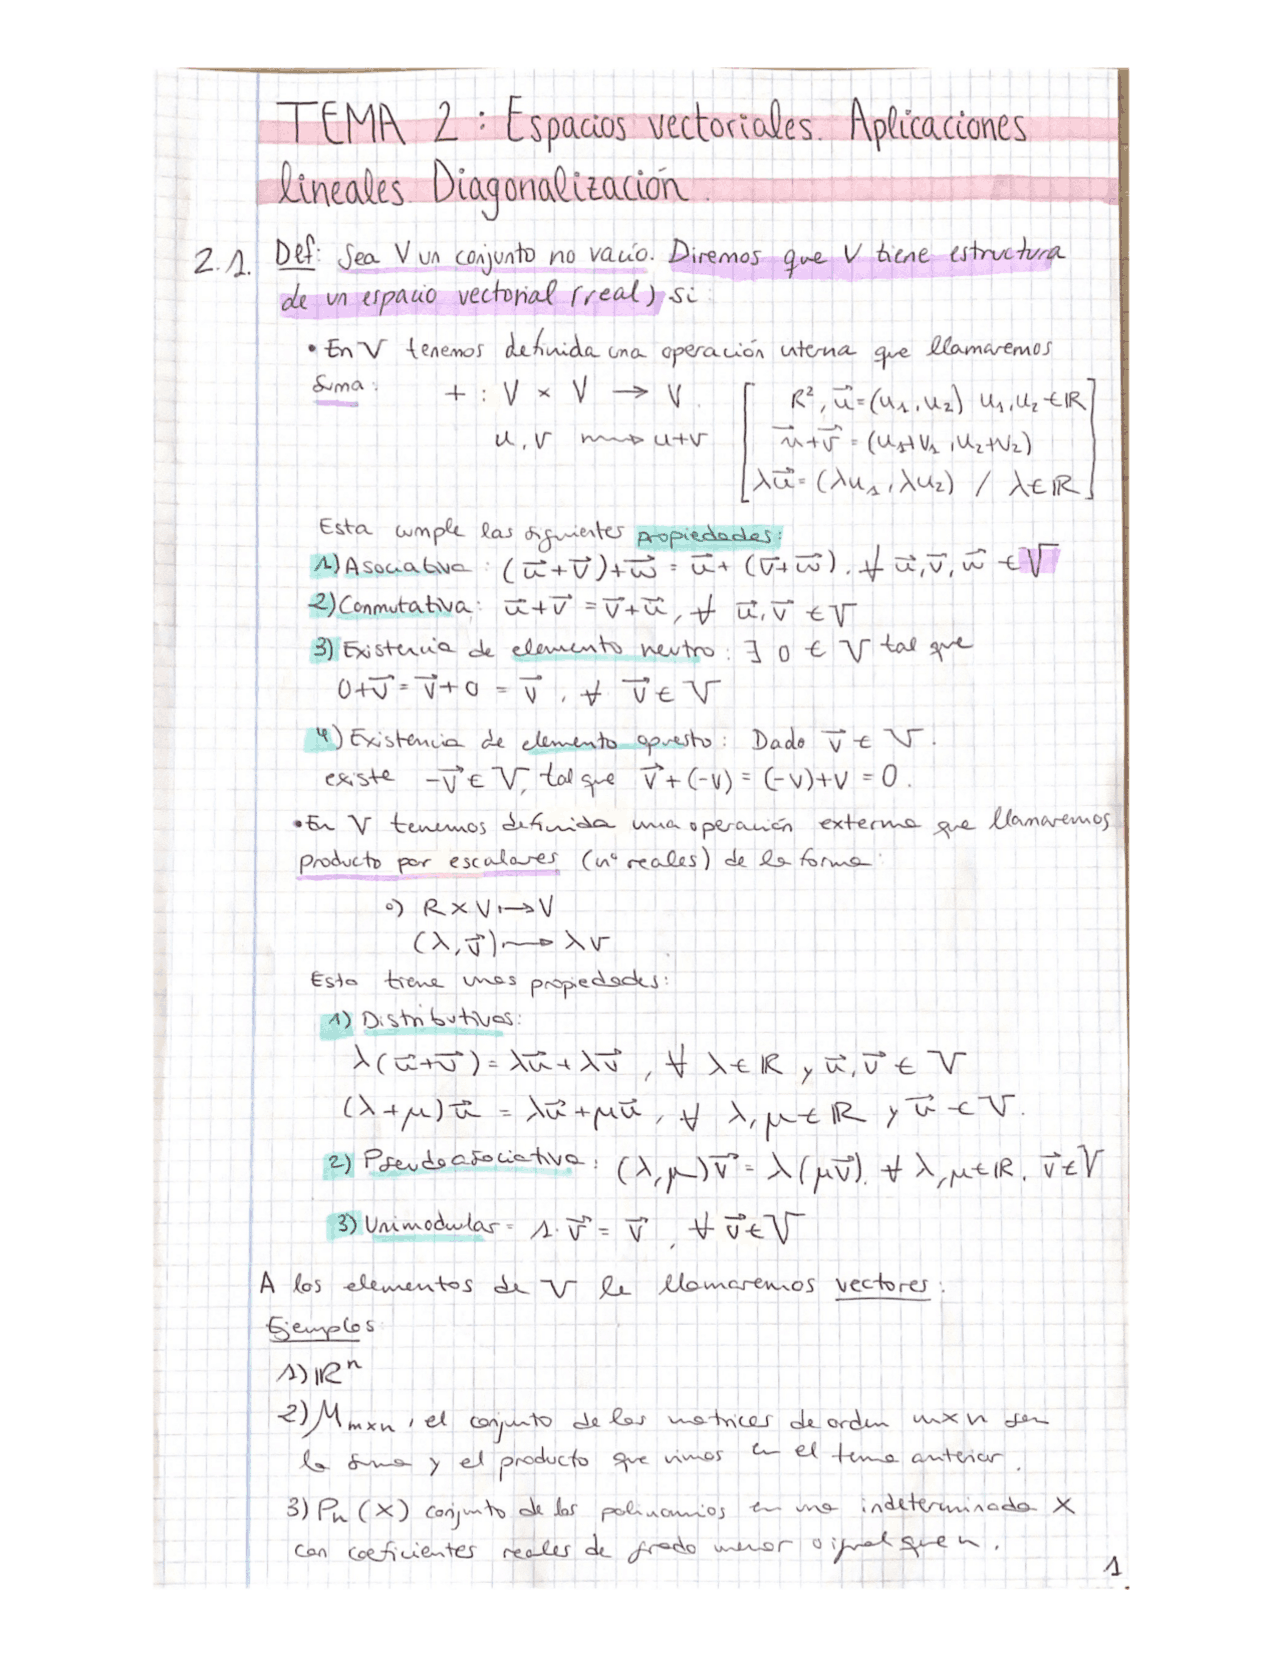 TEMA 2: Espacios vectoriales. Aplicaciones
lineales. Diagonalización.
2.1. Def: Sea V un conjunto no vacío. Diremos que V tiene estructura
de un espacio vectorial (real) si
• En V tenemos definida una operación interna que llamaremos
suma:
+ : V × V → V.
u, v ⟿ u+v
[ R², u⃗=(u₁,u₂) u₁,u₂ ∈ ℝ
u⃗+v⃗ = (u₁+v₁, u₂+v₂)
λu⃗ = (λu₁, λu₂) / λ∈ℝ ]
Esta cumple las siguientes propiedades:
1) Asociativa: (u⃗+v⃗)+w⃗ = u⃗+(v⃗+w⃗), ∀ u⃗,v⃗,w⃗ ∈ V
2) Conmutativa: u⃗+v⃗ = v⃗+u⃗, ∀ u⃗,v⃗ ∈ V
3) Existencia de elemento neutro: ∃ 0 ∈ V tal que
0+v⃗ = v⃗+0 = v⃗, ∀ v⃗ ∈ V
4) Existencia de elemento opuesto: Dado v⃗ ∈ V.
existe -v⃗ ∈ V, tal que v⃗+(-v) = (-v)+v = 0.
• En V tenemos definida una operación externa que llamaremos
producto por escalares (nº reales) de la forma:
∘) R × V ↦ V
(λ, v⃗) ⟼ λv
Esta tiene unas propiedades:
1) Distributivas:
λ(u⃗+v⃗) = λu⃗+λv⃗, ∀ λ∈ℝ y u⃗,v⃗ ∈ V
(λ+μ)u⃗ = λu⃗+μu⃗, ∀ λ,μ∈ℝ y u⃗ ∈ V.
2) Pseudoasociativa: (λ,μ)v⃗ = λ(μv⃗), ∀ λ,μ∈ℝ, v⃗∈V
3) Unimodular = 1·v⃗ = v⃗, ∀ v⃗∈V
A los elementos de V le llamaremos vectores:
Ejemplos
1) ℝⁿ
2) Mₘₓₙ, el conjunto de las matrices de orden m×n con
la suma y el producto que vimos en el tema anterior.
3) Pₙ(X) conjunto de los polinomios en una indeterminada X
con coeficientes reales de grado menor o igual que n.
1